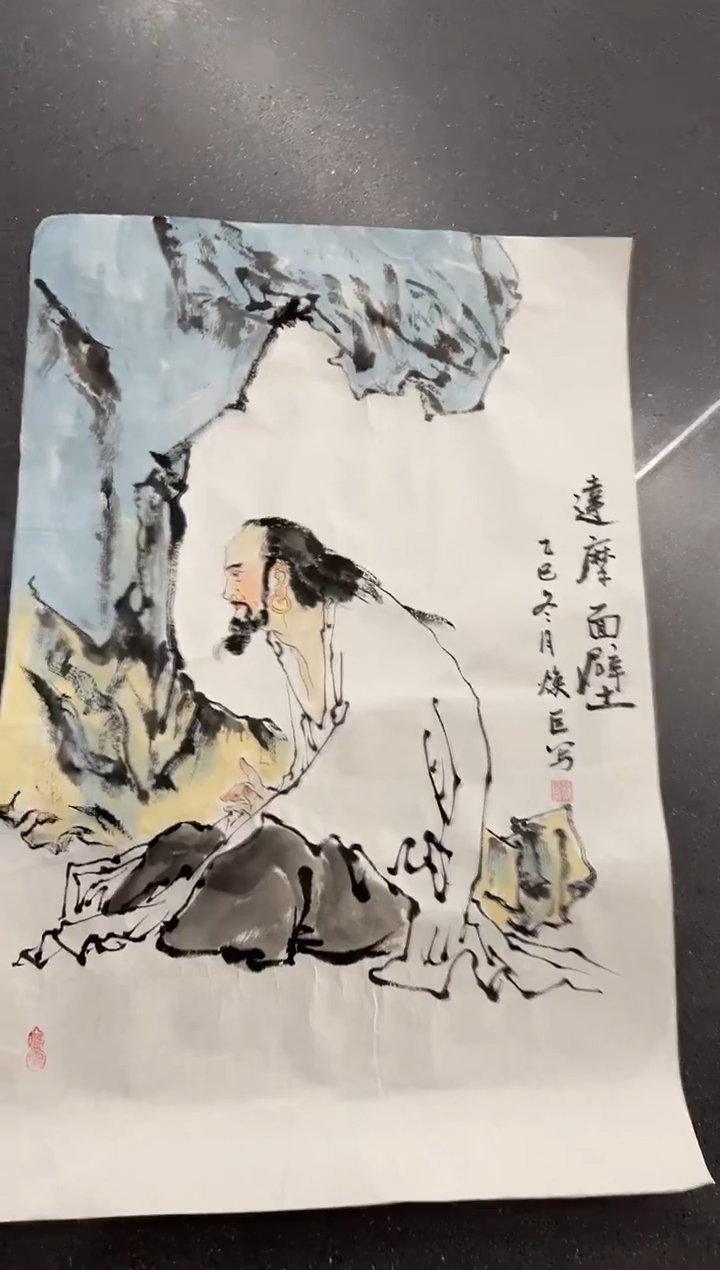 達摩面壁
乙巳冬月焕巨写